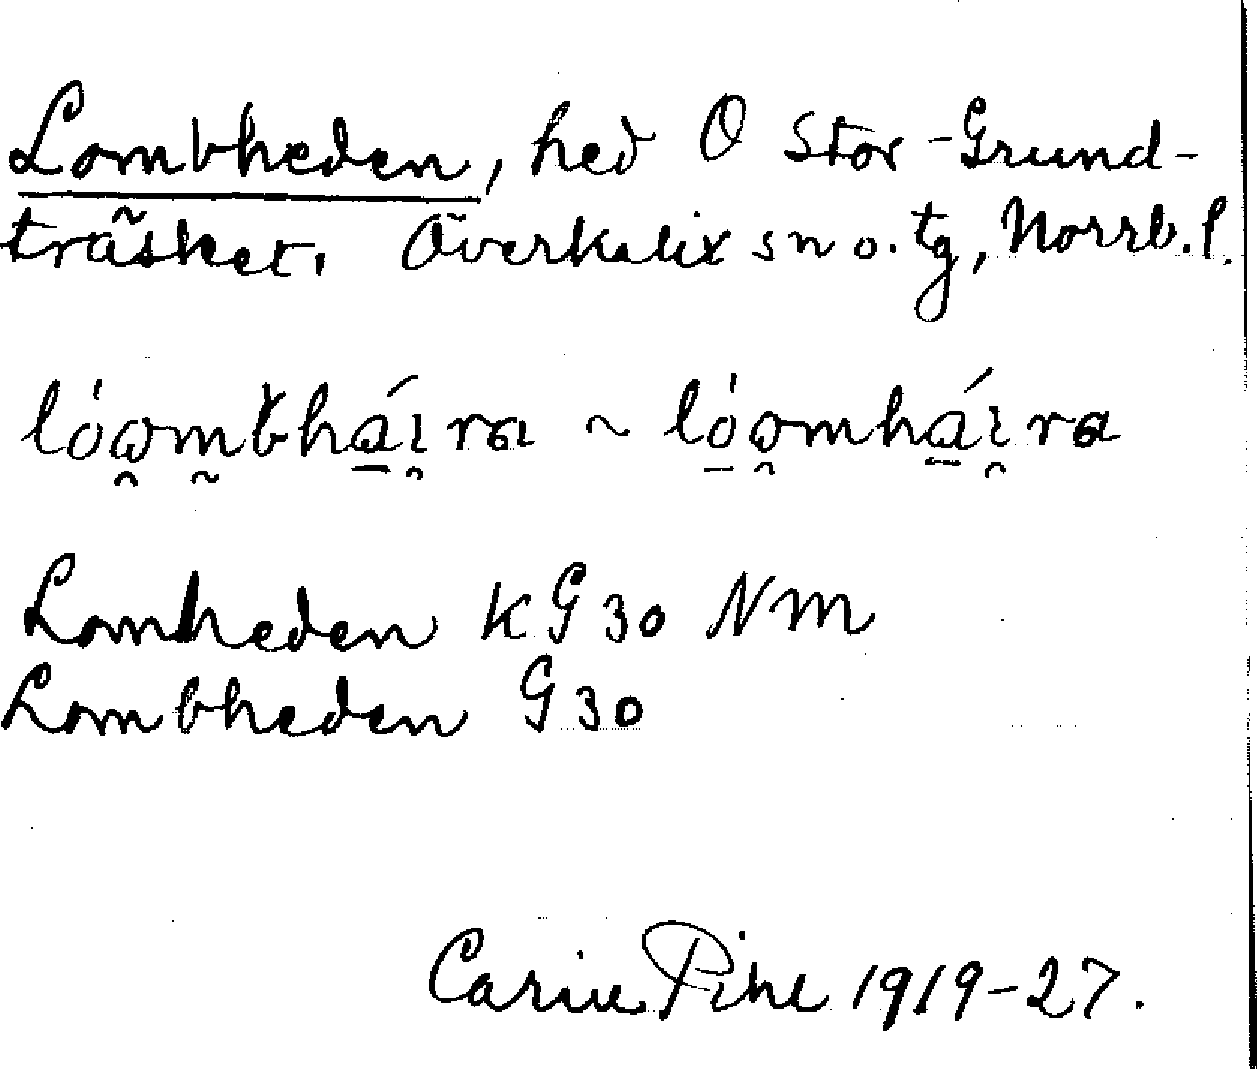 Lombheden, hed O Stor-Grund-
träsket. Överkalix sn o. tg, Norrb. l.
~
Lomheden KG30 NM
Lombheden G30
Carin Pihl 1919-27.